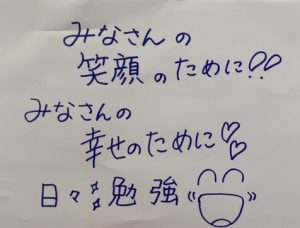 みなさんの
笑顔のために!!
みなさんの
幸せのために♡♡
日々勉強